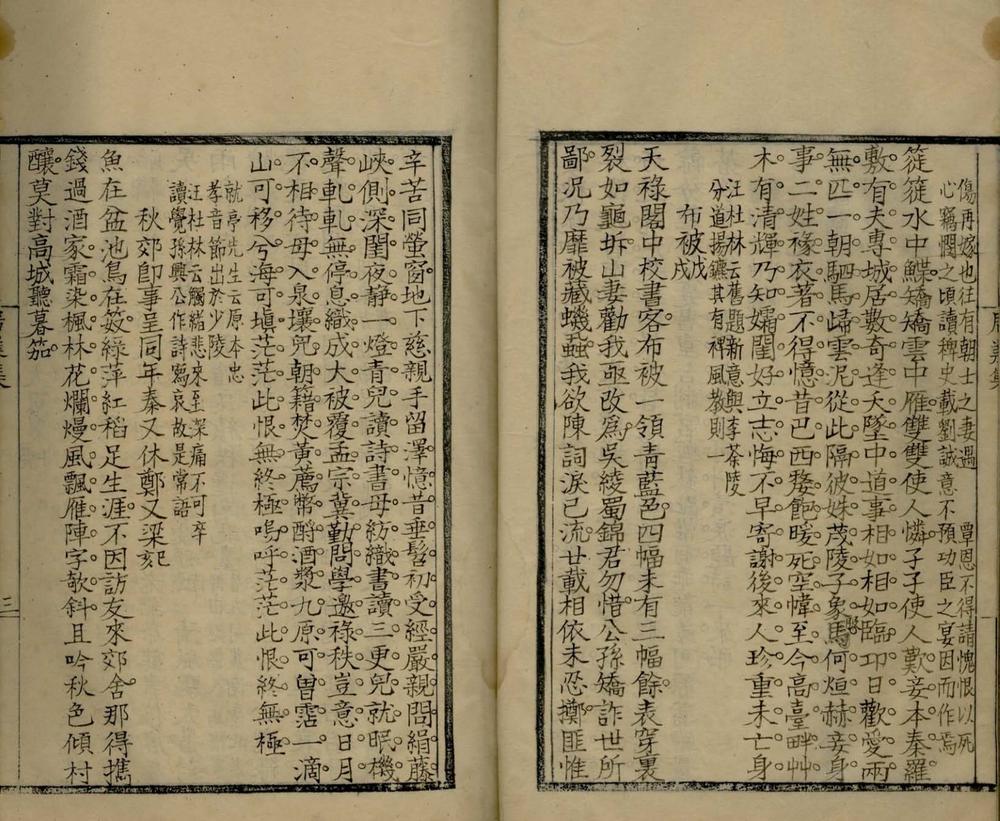 傷再嫁也往有朝士之妻遇　覃恩不得請愧恨以死
心竊憫之頃讀稗史載劉誠意不預功臣之宴因而作焉
簁簁水中鰈矯矯雲中雁雙雙使人憐孑孑使人歎妾本秦羅
敷有夫專城居數奇逢夭墜中道事相如相如臨卭日歡愛兩
無匹一朝駟馬歸雲泥從此隔彼姝茂陵子象馬何烜赫妾身
事二姓褖衣著不得憶昔巴西嫠飽暖死空幃至今高臺畔艸
木有清輝乃知孀閨好立志悔不早寄謝後來人珍重未亡身
汪杜林云舊題新意與李茶陵
分道揚鑣其有裨風教則一
布被戊戌
天祿閣中校書客布被一領青藍色四幅未有三幅餘表穿裏
裂如龜坼山妻勸我亟改為吳綾蜀錦君勿惜公孫矯詐世所
鄙况乃靡被藏蟣蝨我欲陳詞淚已流廿載相依未忍擲匪惟
辛苦同螢窗地下慈親手留澤憶昔垂髫初受經嚴親問絹藤
峽側深閨夜静一燈青兒讀詩書母紡織書讀三更兒就眠機
聲軋軋無停息織成大被覆孟宗冀勤問學邀祿秩豈意日月
不相待母入泉壤兒朝籍焚黄薦幣酹酒漿九原可曾霑一滴
山可移兮海可塡茫茫此恨無終極嗚呼茫茫此恨終無極
就亭先生云原本忠
孝音節出於少陵
汪杜林云觸緒悲來至深痛不可卒
讀覺孫興公作詩寫哀故是常語
秋郊卽事呈同年秦又休鄭又梁刻
魚在盆池鳥在笯綠萍紅稻足生涯不因訪友來郊舍那得攜
錢過酒家霜染楓林花爛熳風飄雁陣字欹斜且吟秋色傾村
釀莫對高城聽暮笳
三